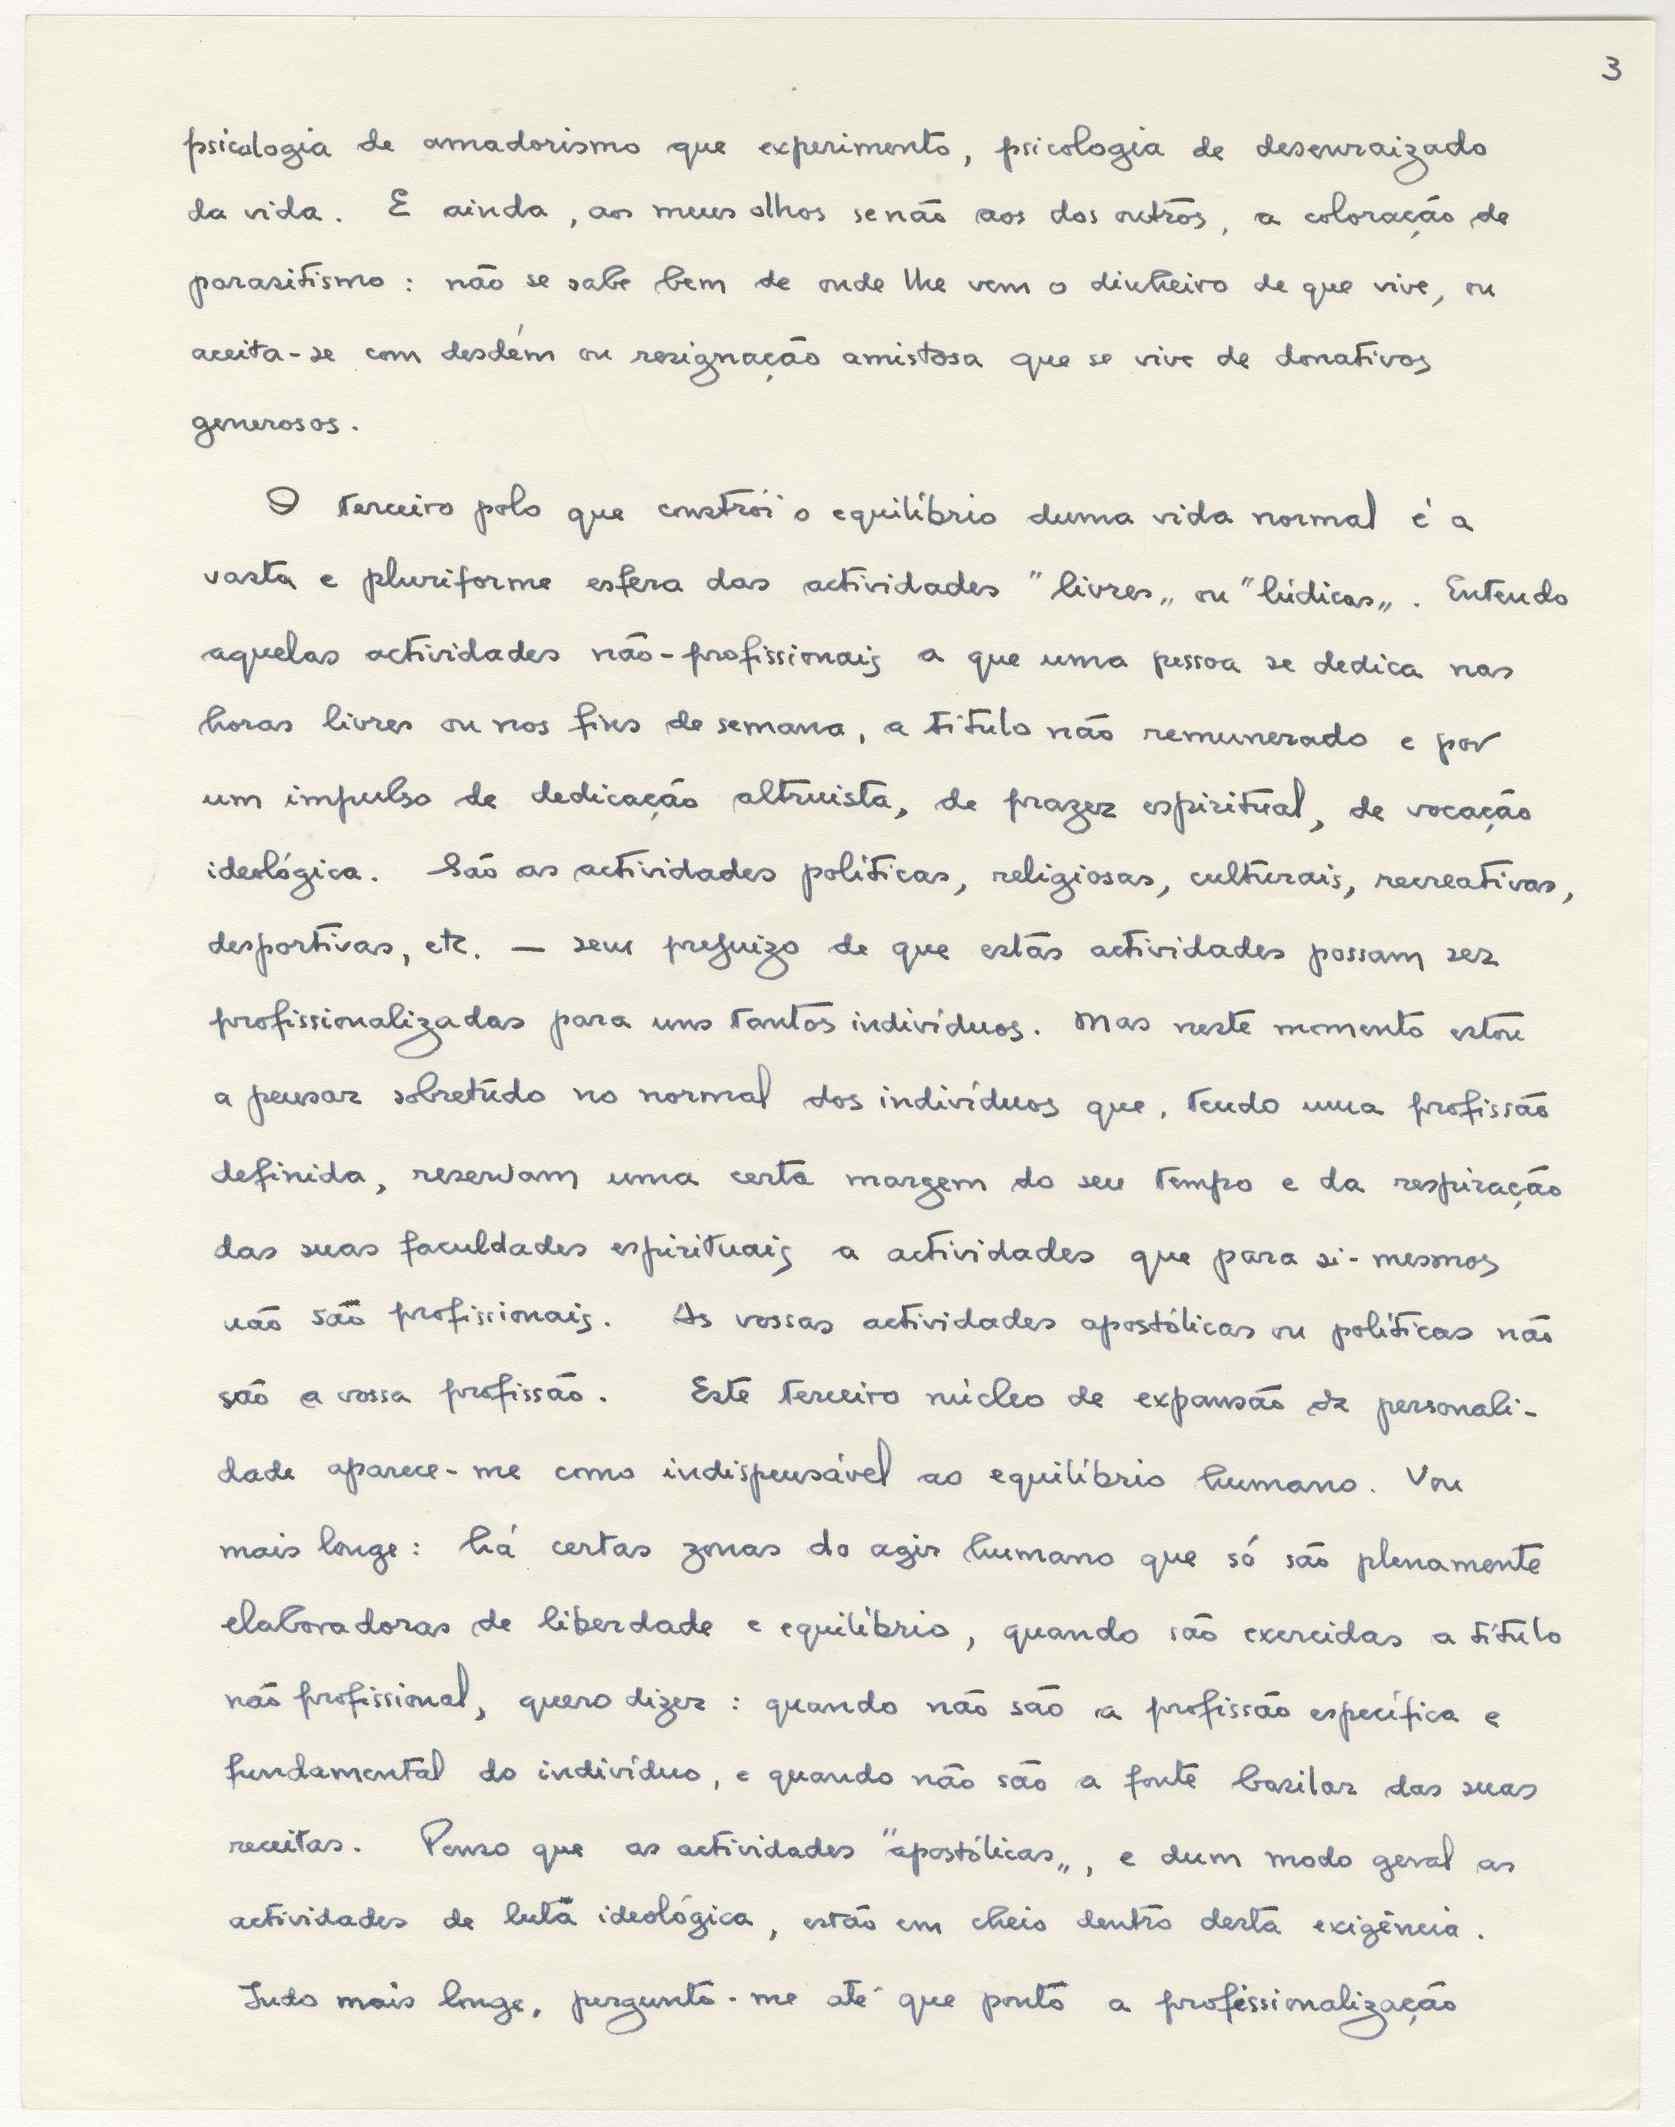 3
psicologia de amadorismo que experimento, psicologia de desenraizado
da vida. E ainda, aos meus olhos senão aos dos outros, a coloração de
parasitismo: não se sabe bem de onde lhe vem o dinheiro de que vive, ou
aceita-se com desdém ou resignação amistosa que se vive de donativos
generosos.
O terceiro polo que constrói o equilíbrio duma vida normal é a
vasta e pluriforme esfera das actividades "livres" ou "lúdicas". Entendo
aquelas actividades não-profissionais a que uma pessoa se dedica nas
horas livres ou nos fins de semana, a título não remunerado e por
um impulso de dedicação altruista, de prazer espiritual, de vocação
ideológica. São as actividades políticas, religiosas, culturais, recreativas,
desportivas, etc. — sem prejuizo de que estas actividades possam ser
profissionalizadas para uns tantos indivíduos. Mas neste momento estou
a pensar sobretudo no normal dos indivíduos que, tendo uma profissão
definida, reservam uma certa margem do seu tempo e da respiração
das suas faculdades espirituais a actividades que para si-mesmos
não são profissionais. As vossas actividades apostólicas ou políticas não
são a vossa profissão. Este terceiro núcleo de expansão da personali-
dade aparece-me como indispensável ao equilíbrio humano. Vou
mais longe: há certas zonas do agir humano que só são plenamente
elaboradoras de liberdade e equilíbrio, quando são exercidas a título
não profissional, quero dizer: quando não são a profissão específica e
fundamental do indivíduo, e quando não são a fonte basilar das suas
receitas. Penso que as actividades "apostólicas", e dum modo geral as
actividades de luta ideológica, estão em cheio dentro desta exigência.
Indo mais longe, pergunto-me até que ponto a profissionalização